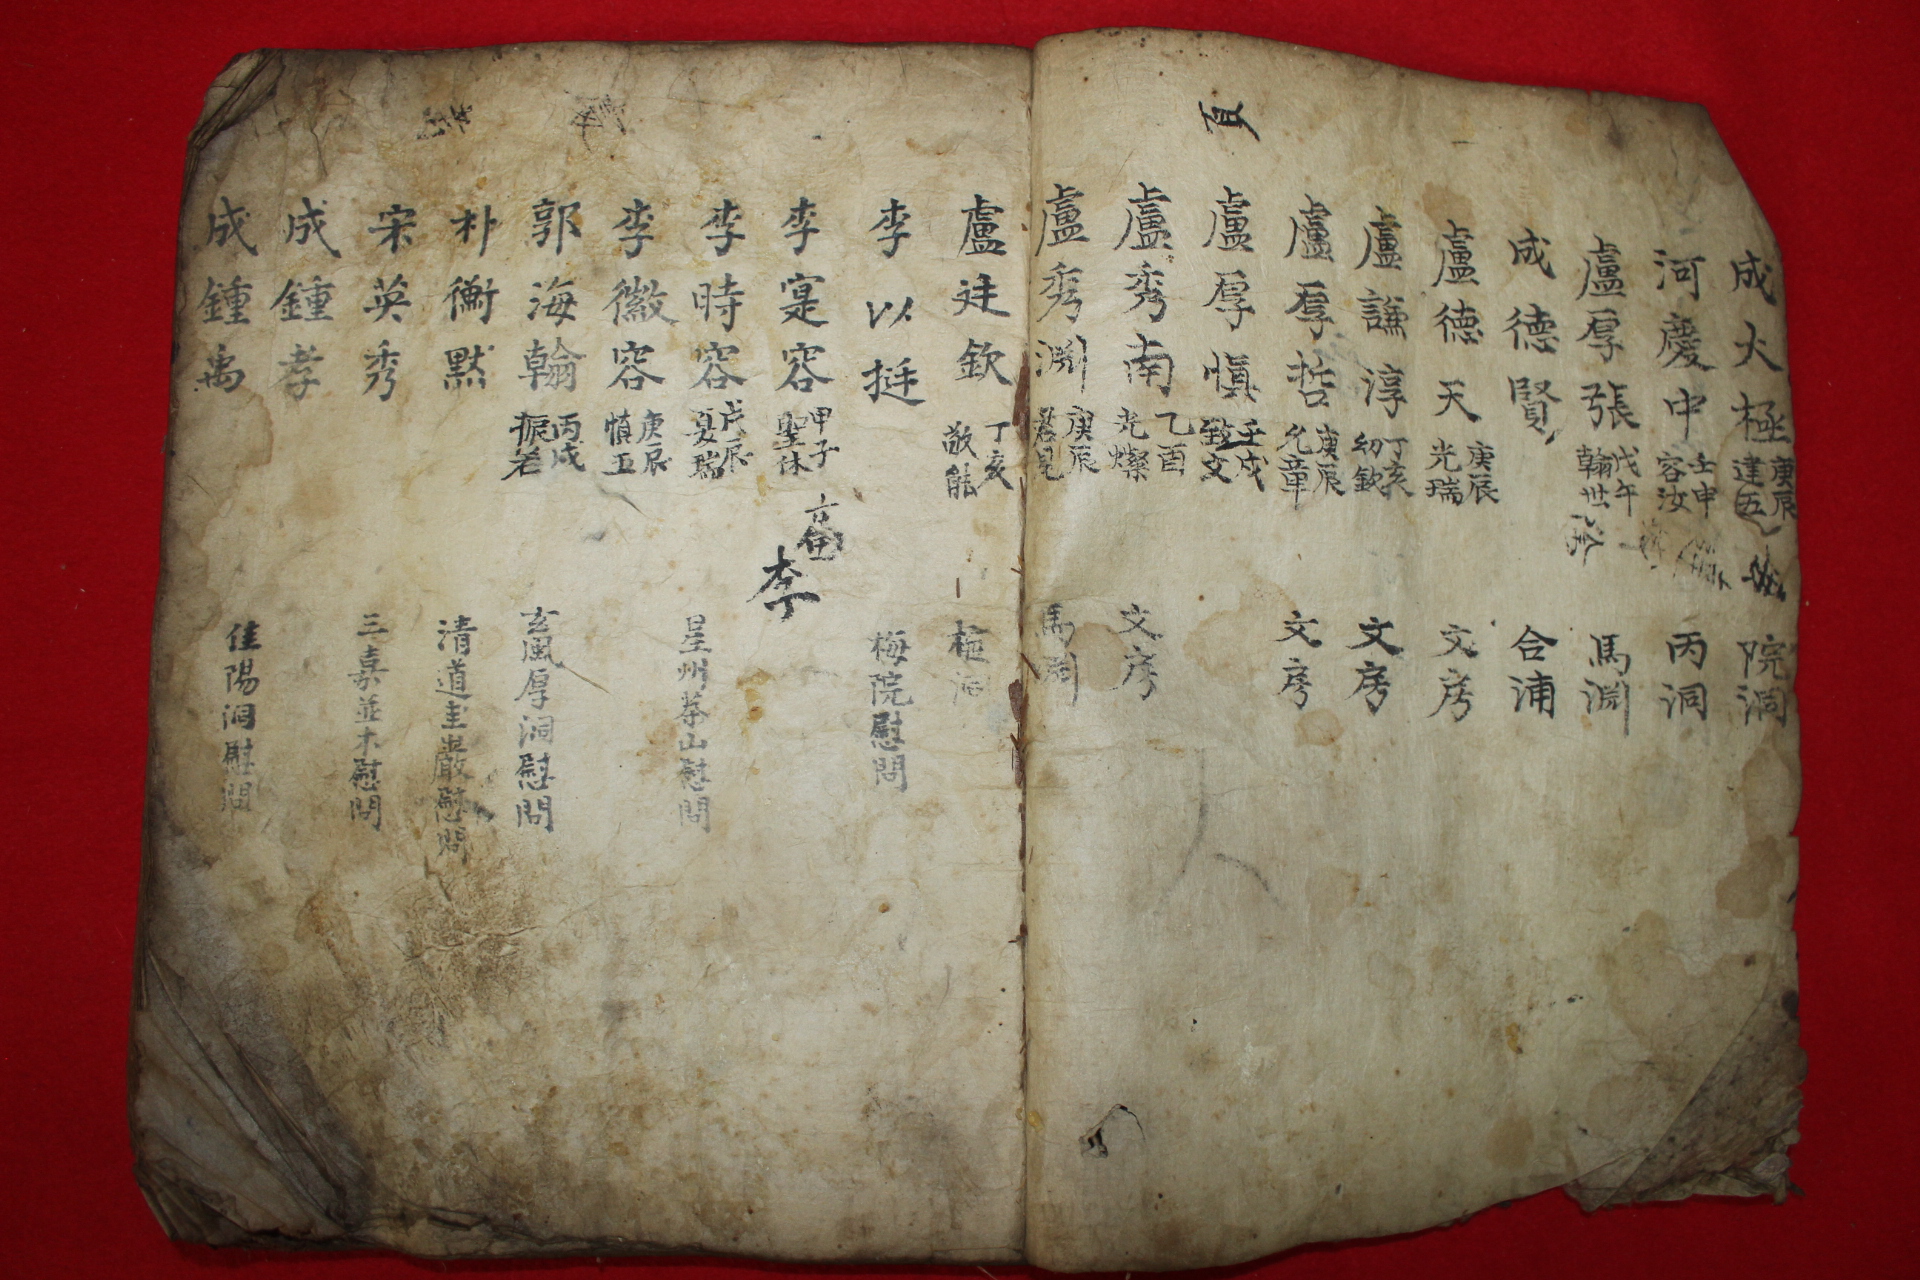 成大極 庚辰 達五 院洞
河慶中 壬申 容汝 丙洞
盧厚張 戊午 翰世 馬淵
成德賢 合浦
盧德天 庚辰 光瑞 文房
盧謙淳 丁亥 幼欽 文房
盧厚哲 庚辰 允章 文房
盧厚愼 壬戌 致文
盧秀南 乙酉 光燦 文房
盧秀淵 庚辰 君見 馬淵
盧廷欽 丁亥 敬能
李以挺 梅院慰問
李寔容 甲子 聖休
李
李時容 戊辰 夏瑞 星州茶山慰問
李徽容 庚辰 愼五
郭海翰 丙戌 振若 玄風厚洞慰問
朴衡默 清道圭巖慰問
宋英秀 三嘉並木慰問
成鍾孝
成鍾禹 佳陽洞慰問